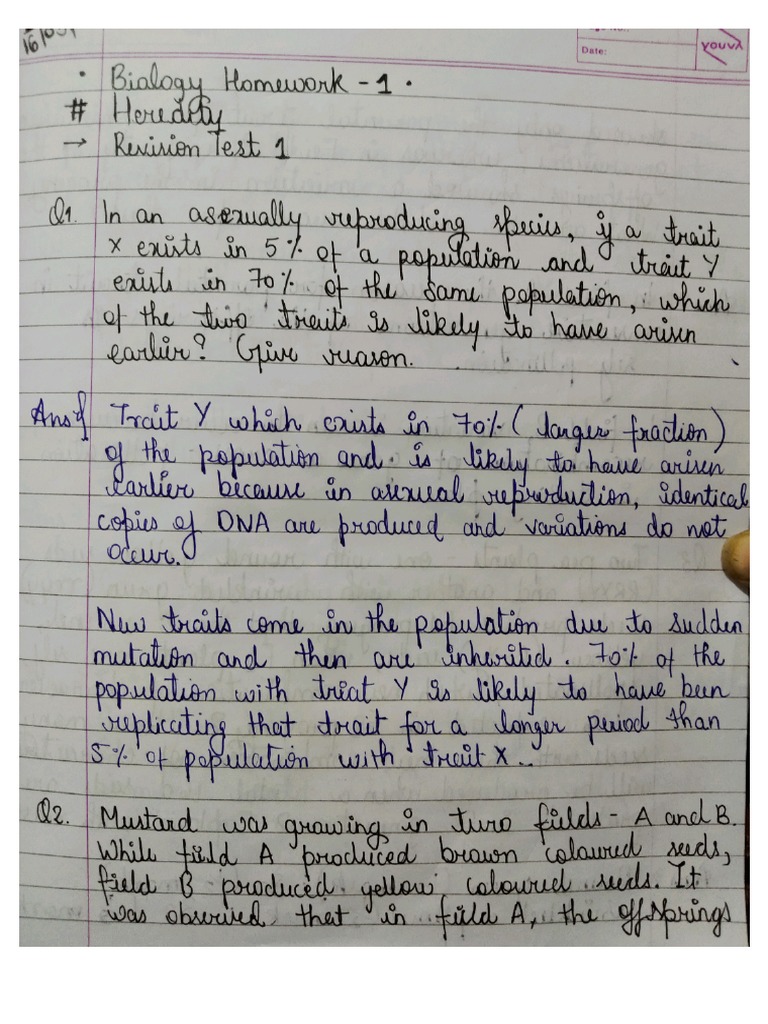 Date:
youva
• Biology Homework - 1 •
# Heredity
→ Revision Test 1
Q1. In an asexually reproducing species, if a trait
X exists in 5% of a population and trait Y
exists in 70% of the same population, which
of the two traits is likely to have arisen
earlier? Give reason.
Ans} Trait Y which exists in 70% (larger fraction)
of the population and is likely to have arisen
earlier because in asexual reproduction, identical
copies of DNA are produced and variations do not
occur.
New traits come in the population due to sudden
mutation and then are inherited. 70% of the
population with trait Y is likely to have been
replicating that trait for a longer period than
5% of population with trait X..
Q2. Mustard was growing in two fields - A and B.
While field A produced brown coloured seeds,
field B produced yellow coloured seeds. It
was observed that in field A, the offsprings